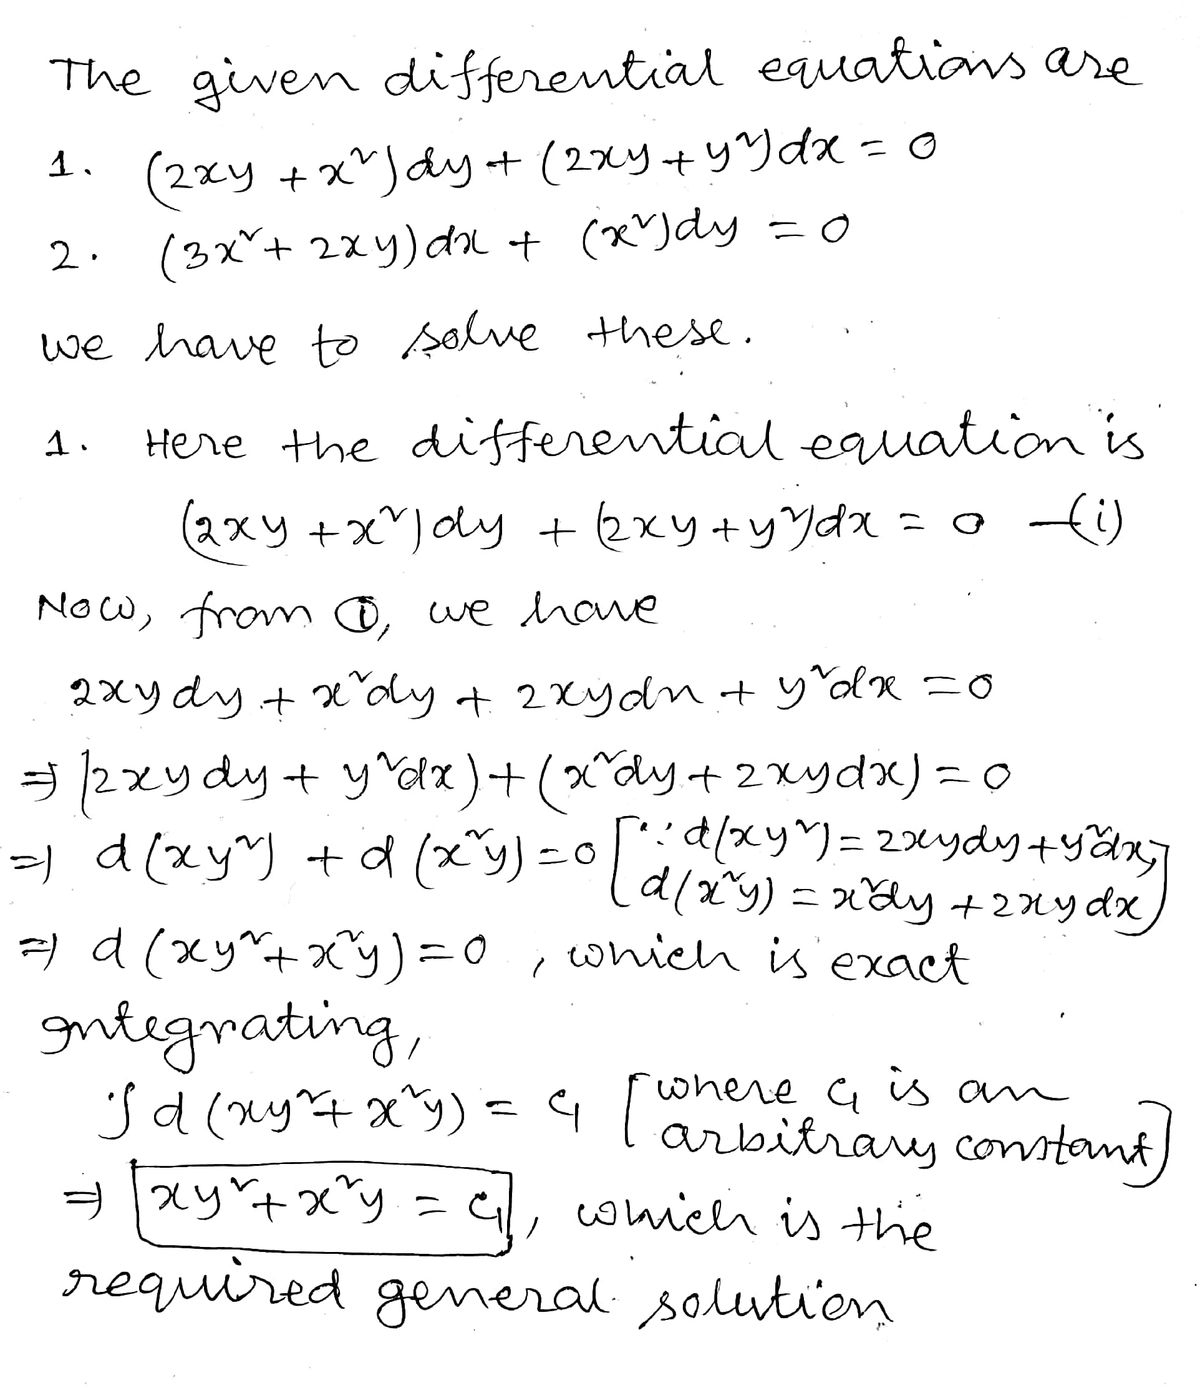 The given differential equations are
1. (2xy + x²)dy + (2xy + y²)dx = 0
2. (3x² + 2xy)dx + (x²)dy = 0
we have to solve these.
1. Here the differential equation is
(2xy + x²)dy + (2xy + y²)dx = 0 —(i)
Now, from ①, we have
2xydy + x²dy + 2xydx + y²dx = 0
⇒ (2xydy + y²dx) + (x²dy + 2xydx) = 0
⇒ d(xy²) + d(x²y) = 0 [∵ d(xy²) = 2xydy + y²dx,
d(x²y) = x²dy + 2xydx]
⇒ d(xy² + x²y) = 0, which is exact
Integrating,
∫d(xy² + x²y) = c₁ [where c₁ is an
arbitrary constant]
⇒ xy² + x²y = c₁, which is the
required general solution